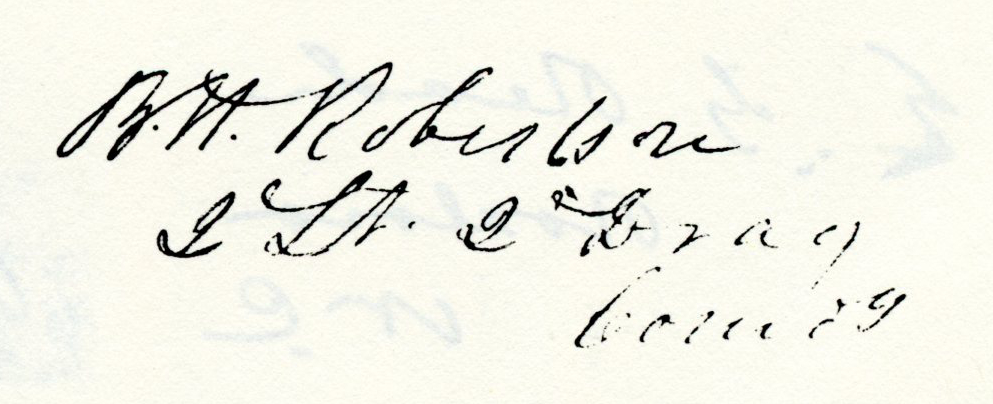 B. H. Robertson
2d Lt. 2d Drag
Comdg